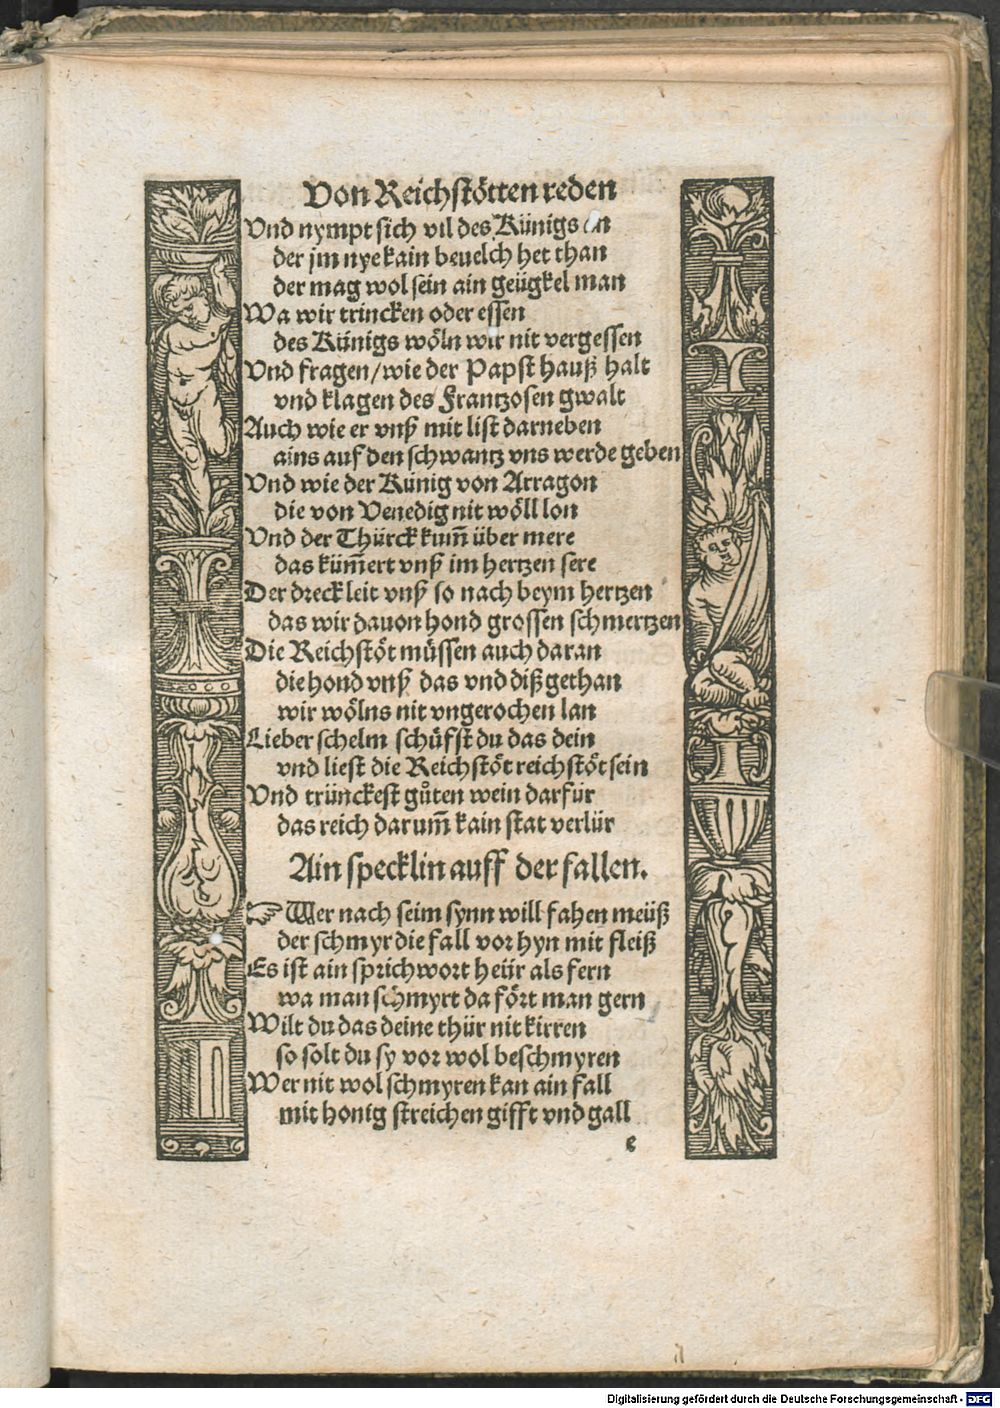 Von Reichstötten reden
Vnd nympt sich vil des Künigs an
der jm nye kain beuelch het than
der mag wol sein ain geügkel man
Wa wir trincken oder essen
des Künigs wöln wir nit vergessen
Vnd fragen / wie der Papst hauß halt
vnd klagen des Frantzosen gwalt
Auch wie er vnß mit list darneben
ains auf den schwantz vns werde geben
Vnd wie der Künig von Arragon
die von Venedig nit wöll lon
Vnd der Thürck kum̄ über mere
das küm̄ert vnß im hertzen sere
Der dreck leit vnß so nach beym hertzen
das wir dauon hond grossen schmertzen
Die Reichstöt müssen auch daran
die hond vnß das vnd diß gethan
wir wölns nit vngerochen lan
Lieber schelm schüfst du das dein
vnd liest die Reichstöt reichstöt sein
Vnd trünckest gůten wein darfür
das reich darum̄ kain stat verlür
Ain specklin auff der fallen.
☞ Wer nach seim synn will fahen meüß
der schmyr die fall vor hyn mit fleiß
Es ist ain sprichwort heür als fern
wa man schmyrt da fört man gern
Wilt du das deine thür nit kirren
so solt du sy vor wol beschmyren
Wer nit wol schmyren kan ain fall
mit honig streichen gifft vnd gall
e
Digitalisierung gefördert durch die Deutsche Forschungsgemeinschaft - DFG